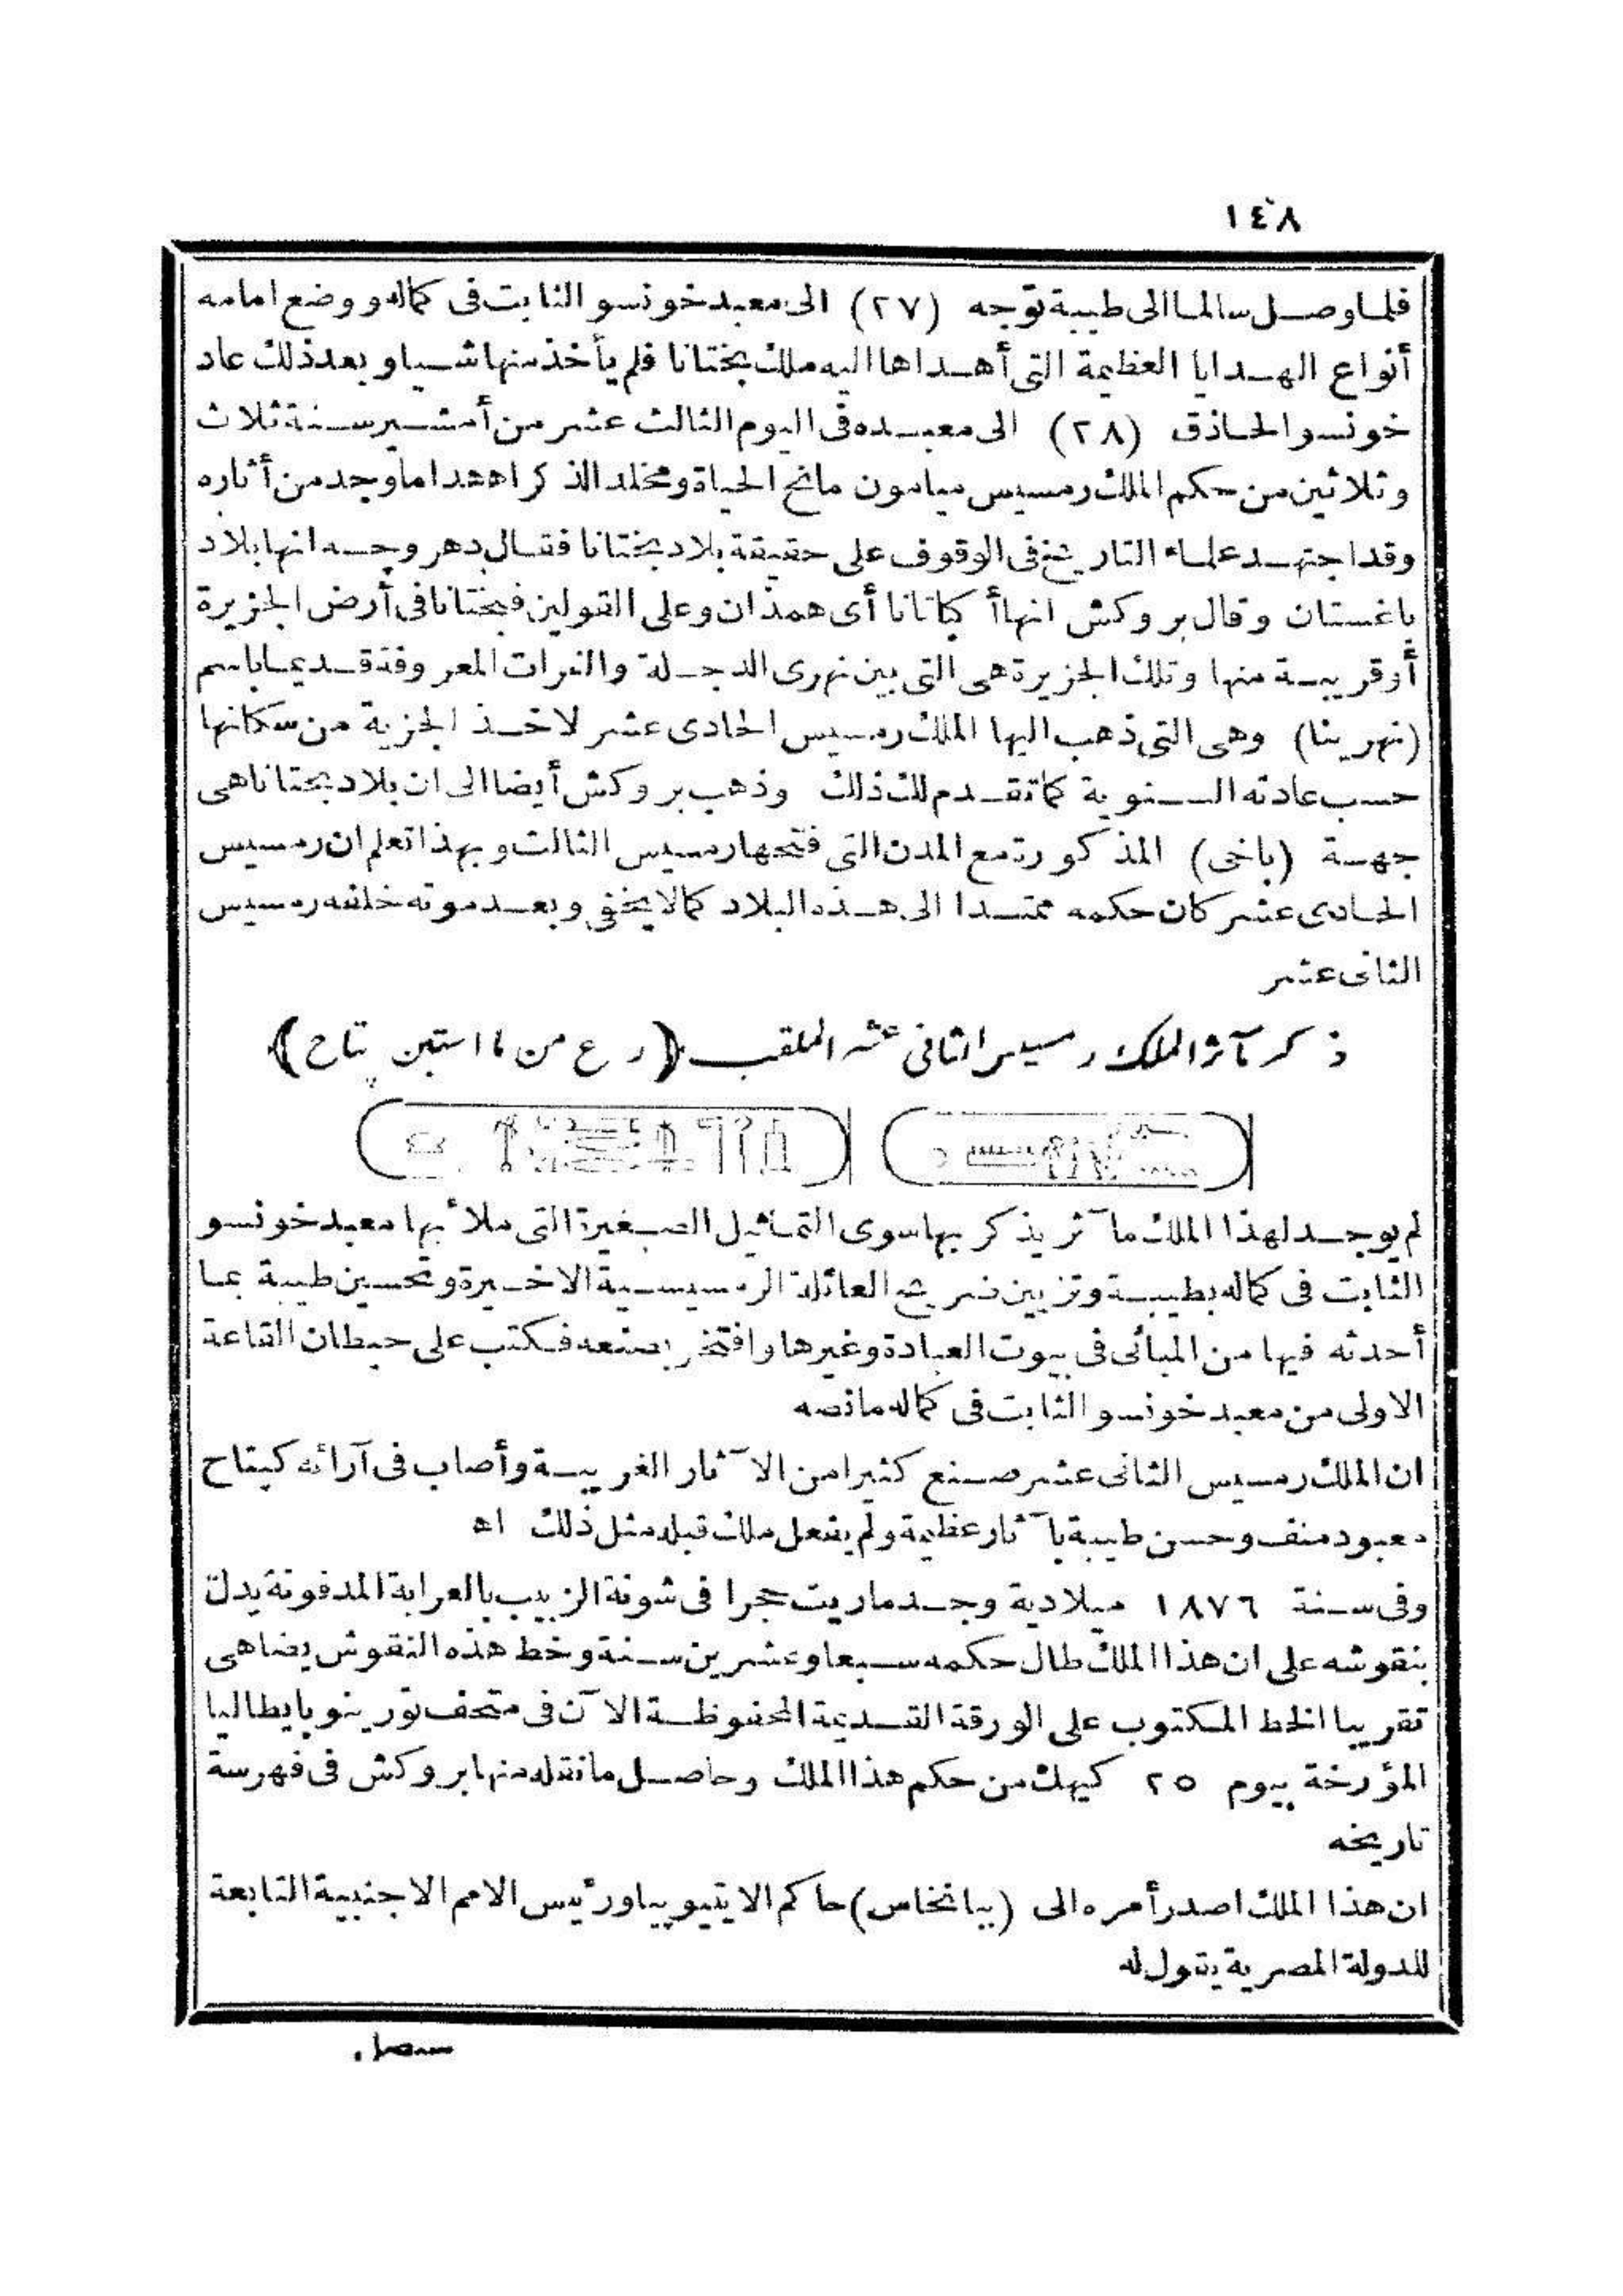 ١٤٨
فلما وصل سالما الى طيبة توجه (٢٧) الى معبد خونسو الثابت فى كماله ووضع امامه
أنواع الهدايا العظيمة التى أهداها اليه ملك بختانا فلم يأخذ منها شيا وبعد ذلك عاد
خونسو الحاذق (٢٨) الى معبده فى اليوم الثالث عشر من أمشير سنة ثلاث
وثلاثين من حكم الملك رمسيس ميامون مانح الحياة ومخلد الذكر اهـ هذا ما وجد من أثاره
وقد اجتهد علماء التاريخ فى الوقوف على حقيقة بلاد بختانا فقال دهر وجه انها بلاد
باغستان وقال بروكش انها أكاتانا أى همذان وعلى القولين فبختانا فى أرض الجزيرة
أو قريبة منها وتلك الجزيرة هى التى بين نهرى الدجلة والفرات المعروفة قديما باسم
(نهرينا) وهى التى ذهب اليها الملك رمسيس الحادى عشر لاخذ الجزية من سكانها
حسب عادته السنوية كما تقدم لك ذلك وذهب بروكش أيضا الى ان بلاد بختانا هى
جهة (باخى) المذكورة مع المدن التى فتحها رمسيس الثالث وبهذا تعلم ان رمسيس
الحادى عشر كان حكمه ممتدا الى هذه البلاد كما لا يخفى وبعد موته خلفه رمسيس
الثانى عشر
ذكر مآثر الملك رمسيس الثانى عشر الملقب (رع من ما استبن پتاح)
لم يوجد لهذا الملك مآثر يذكر بها سوى التماثيل الصغيرة التى ملأ بها معبد خونسو
الثابت فى كماله بطيبة وتزيين ضريح العائلة الرمسيسية الاخيرة وتحسين طيبة بما
أحدثه فيها من المبانى فى بيوت العبادة وغيرها وافتخر بصنعه فكتب على حيطان القاعة
الاولى من معبد خونسو الثابت فى كماله ما نصه
ان الملك رمسيس الثانى عشر صنع كثيرا من الآثار الغريبة وأصاب فى آرائه كپتاح
معبود منف وحسن طيبة بآثار عظيمة ولم يفعل ملك قبله مثل ذلك اهـ
وفى سنة ١٨٧٦ ميلادية وجد ماريت حجرا فى شونة الزبيب بالعرابة المدفونة يدل
بنقوشه على ان هذا الملك طال حكمه سبعا وعشرين سنة وخط هذه النقوش يضاهى
تقريبا الخط المكتوب على الورقة القديمة المحفوظة الآن فى متحف تورينو بايطاليا
المؤرخة بيوم ٢٥ كيهك من حكم هذا الملك وحاصل ما نقله منها بروكش فى فهرسة
تاريخه
ان هذا الملك اصدر أمره الى (بيانخاس) حاكم الايتيوپيا ورئيس الامم الاجنبية التابعة
للدولة المصرية يقول له